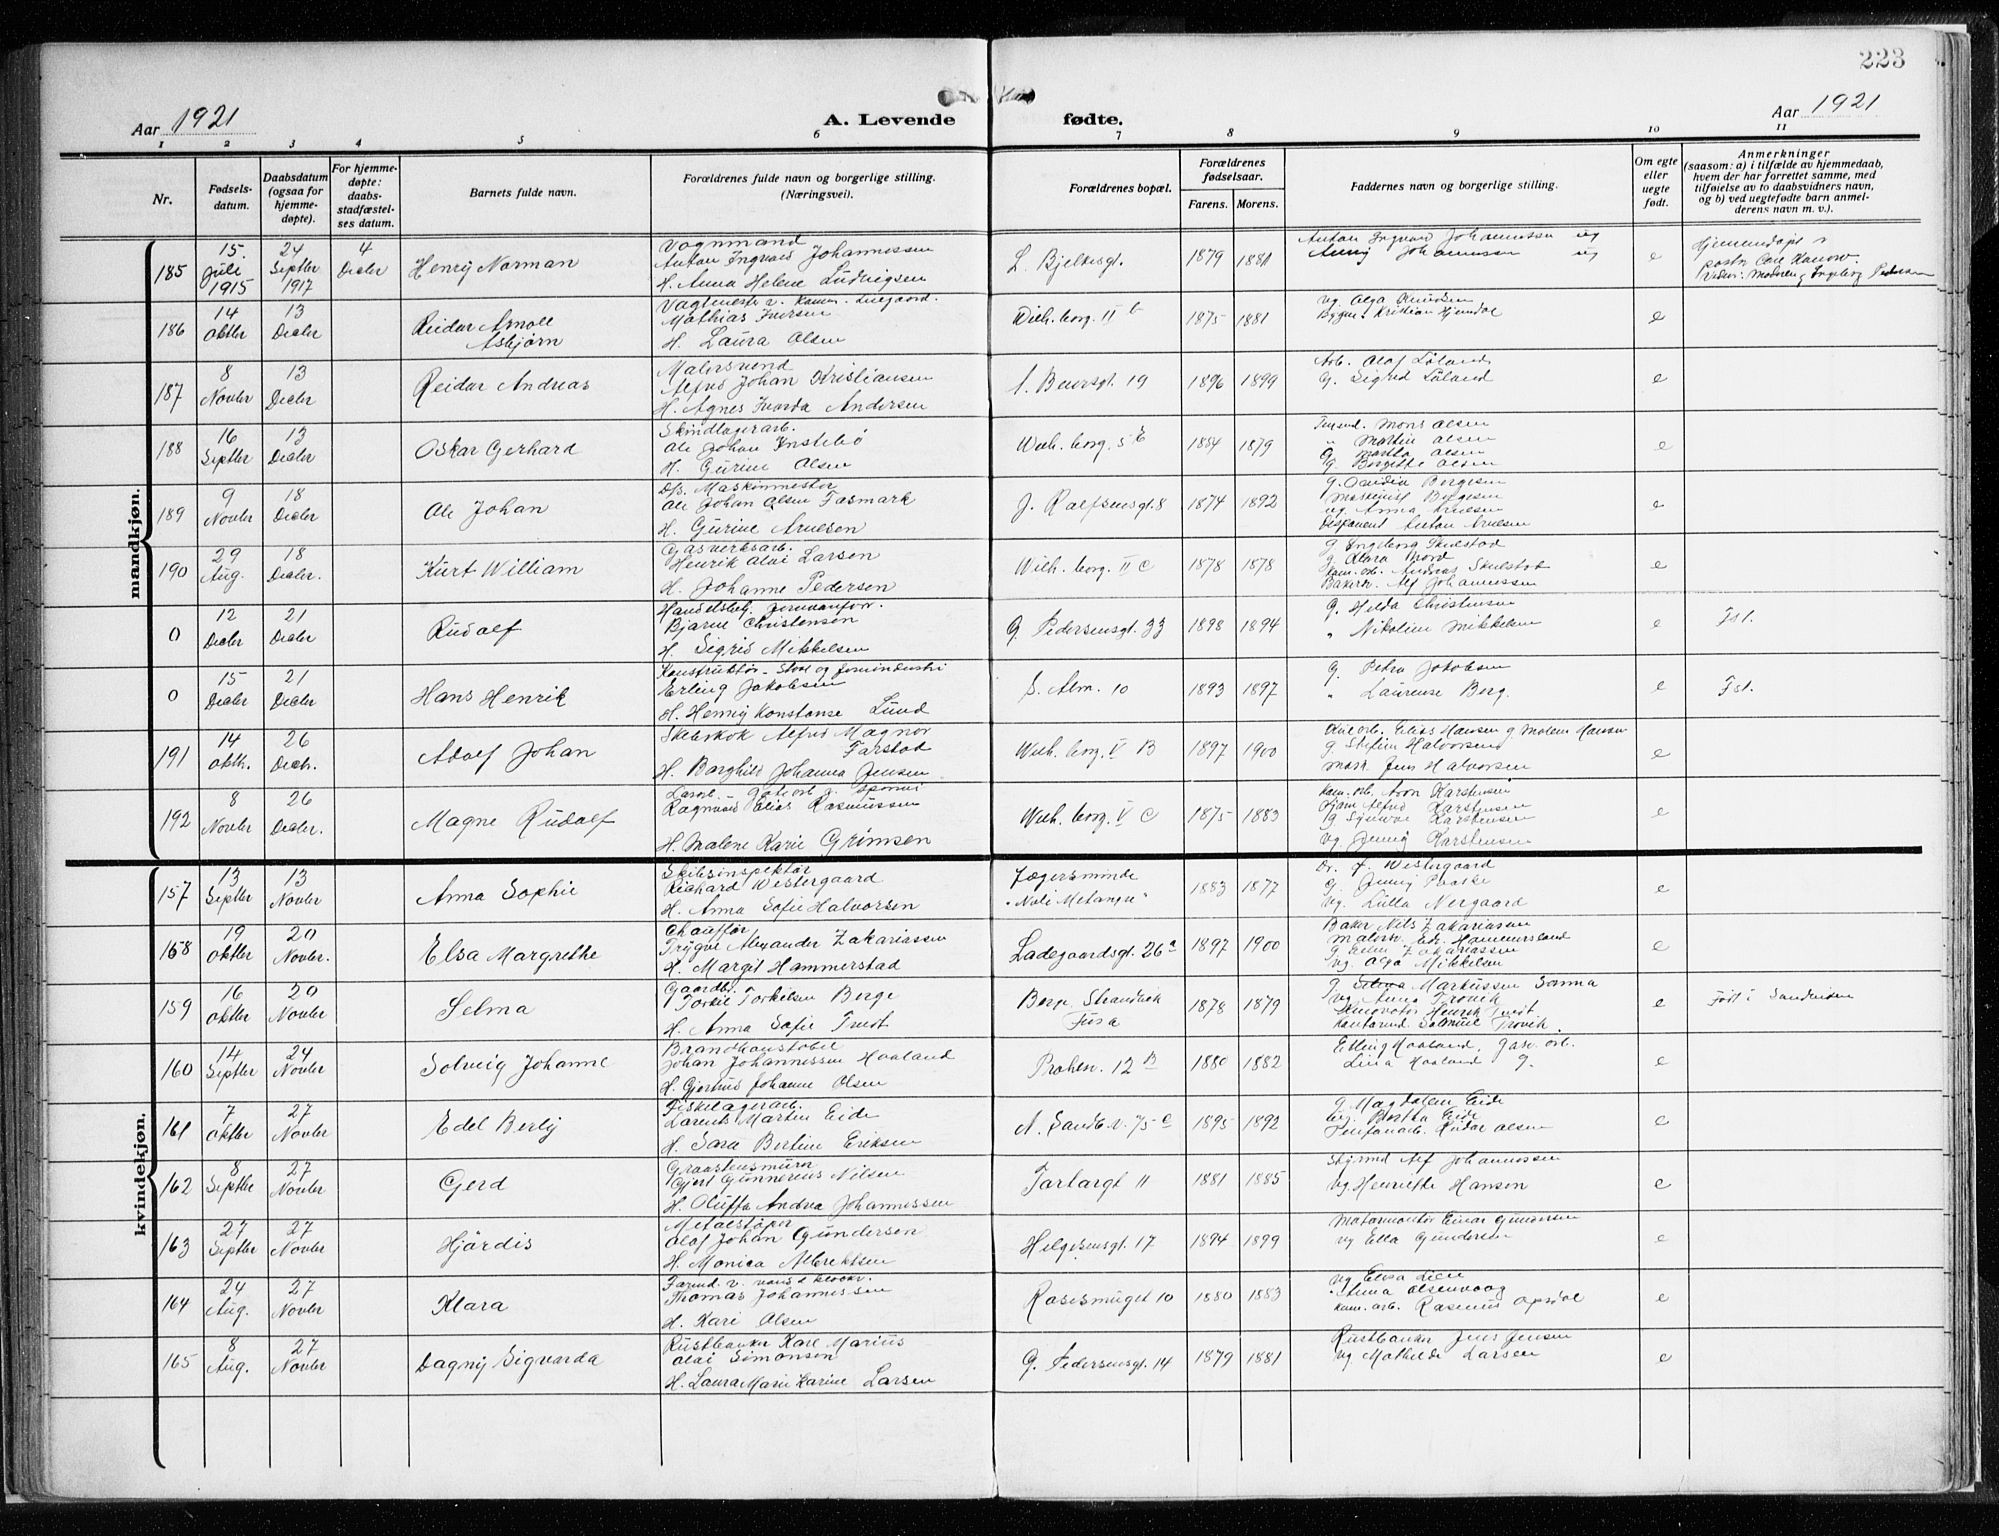 223
Aar 1921
A. Levende
fødte.
Aar 1921
1 2 3 4 5 6 7 8 9 10 11
Nr.
Fødsels-
datum.
Daabsdatum
(ogsaa for
hjemme-
døpte).
For hjemme-
døpte:
daabs-
stadfæstel-
ses datum.
Barnets fulde navn.
Forældrenes fulde navn og borgerlige stilling.
(Næringsvei).
Forældrenes bopæl.
Forældrenes
fødselsaar.
Farens. Morens.
Faddernes navn og borgerlige stilling.
Om egte
eller
uegte
født.
Anmerkninger
(saasom: a) i tilfælde av hjemmedaab,
hvem der har forrettet samme, med
tilføielse av to daabsvidners navn,
og b) ved uegtefødte barn anmel-
derens navn m. v.).
mandkjøn.
185
15. Juli 1915
24 Septbr 1917
4 Decbr
Henry Norman
Vognmand
Anton Ingvald Johannessen
H. Anna Helene Ludvigsen
L. Bjelkesgt.
1879 1881
Anton Ingvald Johannessen ug
Anny Johannessen ug
e
Hjemmedøpt
186
14 Oktbr
13 Decbr
Reidar Arnolf
Asbjørn
Mathias Iversen
H. Laura Olsen
Wilh. borg. II b
1875 1881
ug. Olga Knudsen
Kristian Hjemdal
e
187
8 Novbr
13 Decbr
Reidar Andreas
Malersvend
Alfred Johan Kristiansen
H. Agnes Andersen
19
1896 1899
Arb. Olaf Løland
G. Sigrid Løland
e
188
16 Septbr
13 Decbr
Oskar Gerhard
Skindlagerarb.
Ole Johan Instebø
H. Gurine Olsen
Wilh. borg. 5 E
1884 1879
Mons Olsen
" Martin Olsen
G. Martha Olsen
G. Borgitte Olsen
e
189
9 Novbr
18 Decbr
Ole Johan
D/S. Maskinmester
Ole Johan Olsen Fasmark
H. Gurine Arnesen
J. Rolfsensgt. 8
1874 1892
g. Borgesen
Maskinist Borgesen
ug. Anna Arnesen
Disponent Anton Arnesen
e
190
29 Aug.
18 Decbr.
Kurt William
Gasverksarb.
Henrik Olai Larsen
H. Johanne Pedersen
Wilh. borg. II C
1878 1878
g Ingeborg Skulstad
g Klara Nord
Kom. arb. Andreas Skulstad
Bakersv. Alf Johannessen
e
0
12 Decbr
21 Decbr
Rudolf
Bjarne Christensen
H. Sigrid Mikkelsen
G. Pedersensgt. 33
1898 1894
G. Helda Christensen
" Nikoline Mikkelsen
e
Fst.
0
15 Decbr
21 Decbr
Hans Henrik
Konstruktør - Staal og jernindustri
Erling Jakobsen
H. Henny Konstanse Lund
S. Alm. 10
1893 1897
G. Petra Jakobsen
" Laurense Berg.
e
Fst.
191
14 Oktb.
26 Decb.
Adolf Johan
Skibskok Alfred Magnor
Farstad
H. Borghild Johanna Jensen
Wilh. borg. V B
1897 1900
Elias Hansen g Malene Hansen
g Stefine Halvorsen
mask Jens Halvorsen
e
192
8 Novbr
26 Decbr.
Magne Rudolf
Ragnvald Elias Rasmussen
H. Malene Karie Grimsen
Wilh. borg. V C
1875 1883
Kom. arb. Aron Karstensen
Alfred Karstensen
g Karstensen
ug Jenny Karstensen
e
kvindekjøn.
157
13 Septbr
13 Novbr
Anna Sophie
Skibsinspektør
Richard Westergaard
H. Anna Sofie Halvorsen
Jægersminde
1883 1877
Dr. J. Westergaard
G. Jenny Paaske
ug. Lulla Nergaard
e
158
19 Oktbr
20 Novbr.
Elsa Margrethe
Chauffør
Trygve Alexander Zakariassen
H. Margit Hammerstad
Ladegaardsgt. 26a
1897 1900
Baker Nils Zakariassen
Zakariassen
ug. Olga Mikkelsen
e
159
16 Oktbr
20 Novbr
Selma
Gaardbr.
Torkil Torkilsen Berge
H. Anna Sofie Tvedt
Berge Strandvik
Fusa
1878 1879
g. Markussen Sanna
ug Anna Trovik
Renovatør Henrik Tvedt
Trovik.
e
Født i Sandviken
160
14 Septbr
24 Novbr
Solveig Johanne
Brandkonstabel
Johan Johannessen Haaland
H. Gjertrud Johanne Olsen
12 B
1880 1882
Elling Haaland, gasv. arb.
Lina Haaland g.
e
161
7 Oktbr
27 Novbr
Edel Berly
Fiskelagerarb.
Larents Martin Eide
H. Sara Bertine Eriksen
N. Sandv. v. 75 c
1895 1892
g. Magdalene Eide
ug. Bertha Eide
Reidar Olsen
e
162
8 Septbr
27 Novbr
Gerd
Graastensmurer
Gjert Gunnerius Nilsen
H. Oluffa Andrea Johannessen
Tartargt 11
1881 1885
Styrmd Alf Johannessen
ug Henriette Hansen
e
163
27 Septbr
27 Novbr
Hjördis
Metalstøper
Olaf Johan Gundersen
H. Monica Albrektsen
Helgesensgt. 17
1894 1899
Matormontør Einar Gundersen
ug Ella Gundersen
e
164
24 Aug.
27 Novbr
Klara
Thomas Johannessen
H. Kari Olsen
Rosesmuget 10
1880 1883
ug Elisa Lien
" Anna Olsenvaag
Kom. arb. Rasmus Opsdal
e
165
8 Aug.
27 Novbr
Dagny Sigvarda
Rustbanker Karl Marius
Olai Simonsen
H. Laura Marie Karine Larsen
G. Pedersensgt. 14
1879 1881
Rustbanker Jens Jensen
ug Mathilde Larsen
e